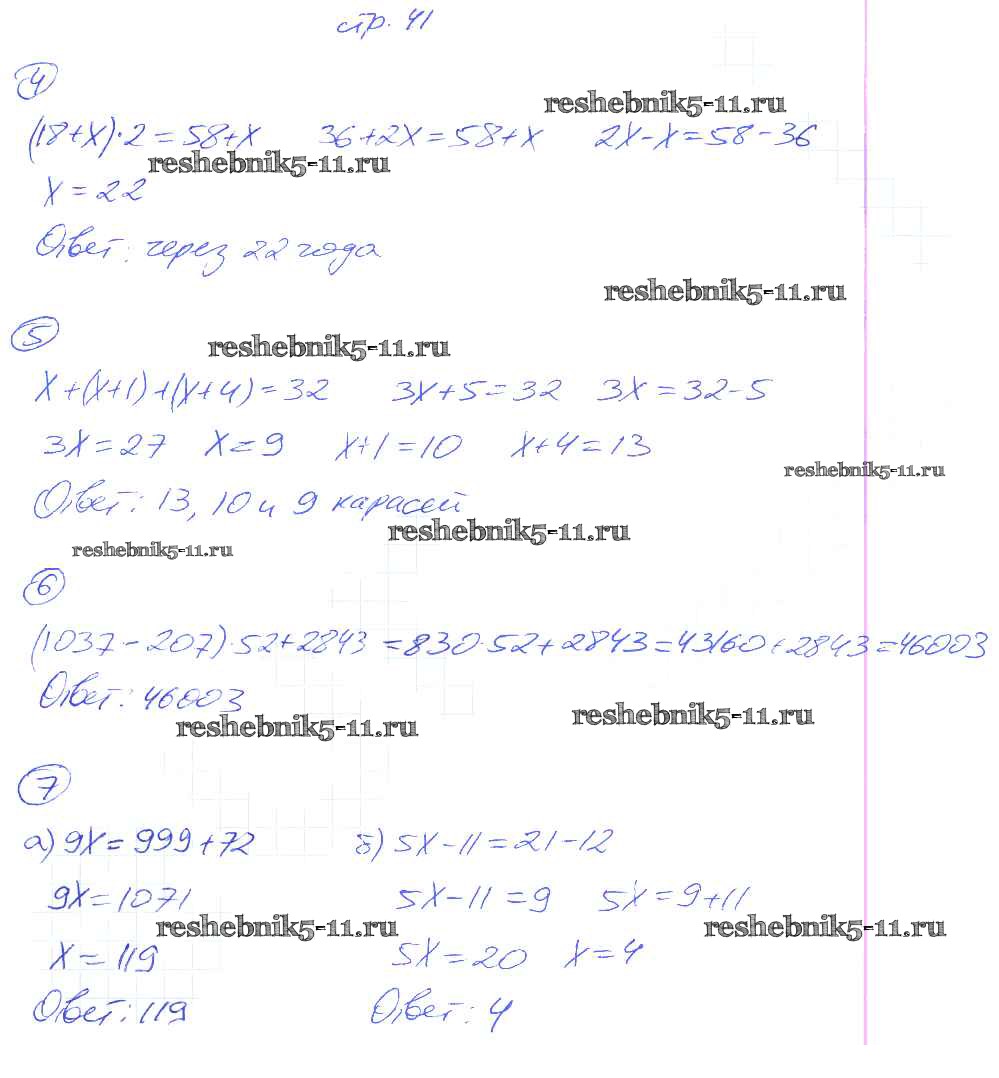 стр. 41
4
reshebnik5-11.ru
(18+x)·2=58+x 36+2x=58+x 2x-x=58-36
reshebnik5-11.ru
x=22
Ответ: через 22 года
reshebnik5-11.ru
5
reshebnik5-11.ru
x+(x+1)+(x+4)=32 3x+5=32 3x=32-5
3x=27 x=9 x+1=10 x+4=13
reshebnik5-11.ru
Ответ: 13, 10 и 9 карасей
reshebnik5-11.ru
reshebnik5-11.ru
6
(1037-207)·52+2843=830·52+2843=43160+2843=46003
Ответ: 46003
reshebnik5-11.ru
reshebnik5-11.ru
7
а) 9x=999+72 б) 5x-11=21-12
9x=1071 5x-11=9 5x=9+11
reshebnik5-11.ru reshebnik5-11.ru
x=119 5x=20 x=4
Ответ: 119 Ответ: 4